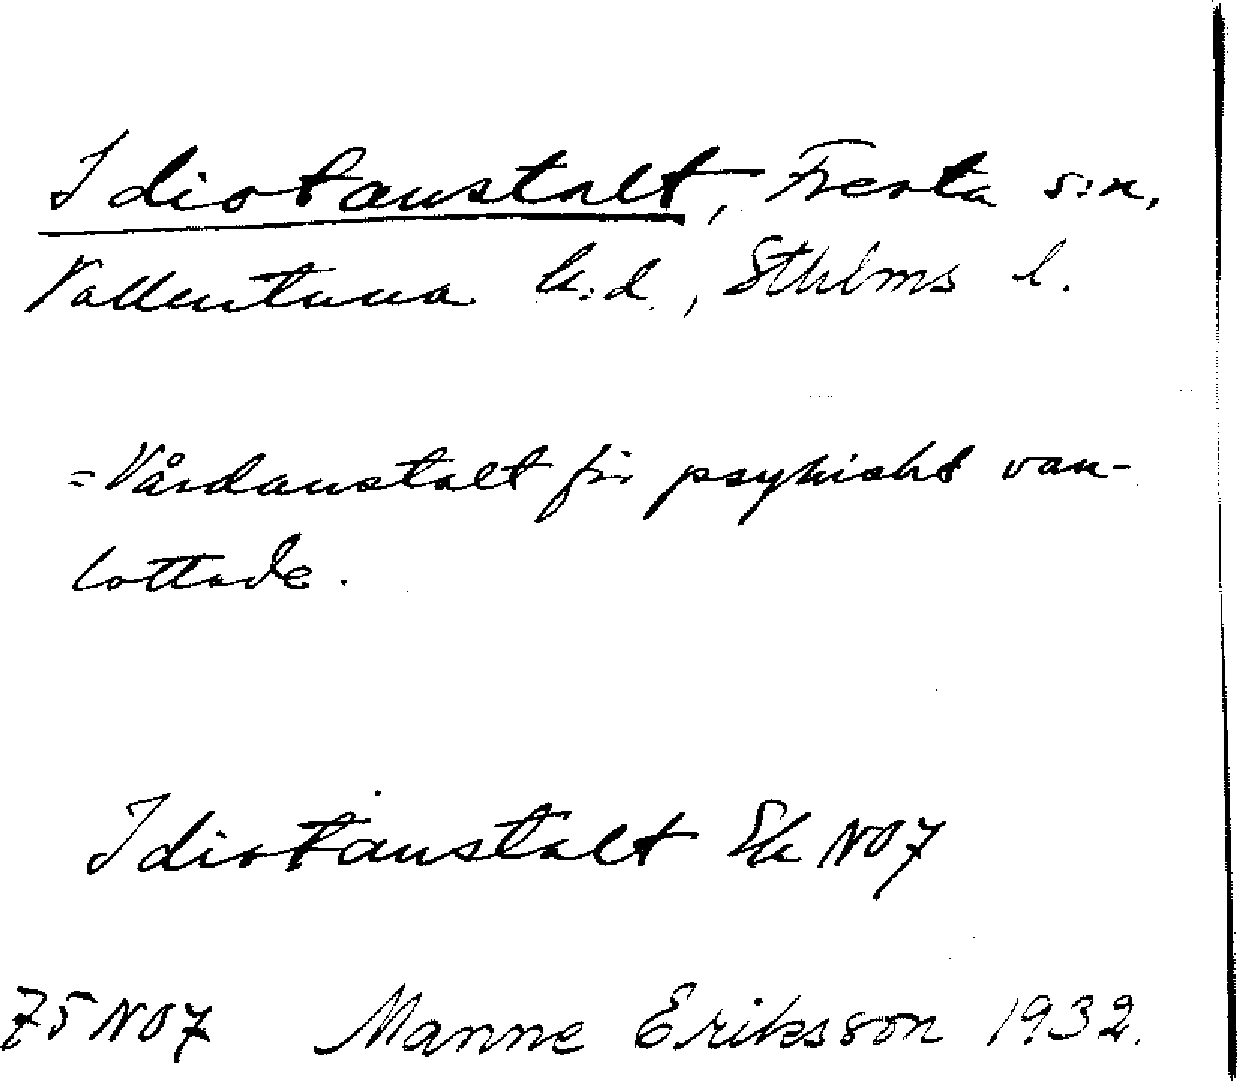 Idiotanstalt, Fresta s:n,
Vallentuna h:d, Sthlms l.
= Vårdanstalt för psykiskt van-
lottade.
Idiotanstalt Ek NO7
75 NO7 Manne Eriksson 1932.